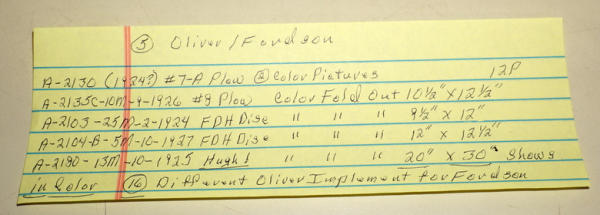 ⑤ Oliver/Fordson
A-2130 (1924?) #7-A Plow ② Color Pictures 12P
A-2135C-10M-4-1926 #8 Plow Color Fold Out 10½" X 12½"
A-2103-25M-2-1924 FDH Disc " " " 9½" x 12"
A-2104-B-5M-10-1927 FDH Disc " " " 12" x 12½"
A-2190-15M-10-1925 Hugh! " " " 20" x 30" Shows
in Color ⑯ Different Oliver Implement for Fordson